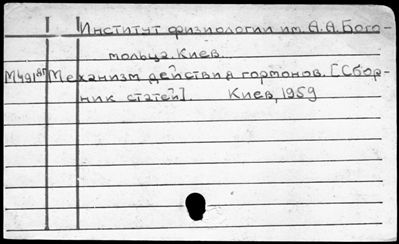 Институт физиологии им. А.А.Бого-
мольца. Киев.
М491ᵍᵀ Механизм действия гормонов. [Сбор-
ник статей]. Киев, 1959